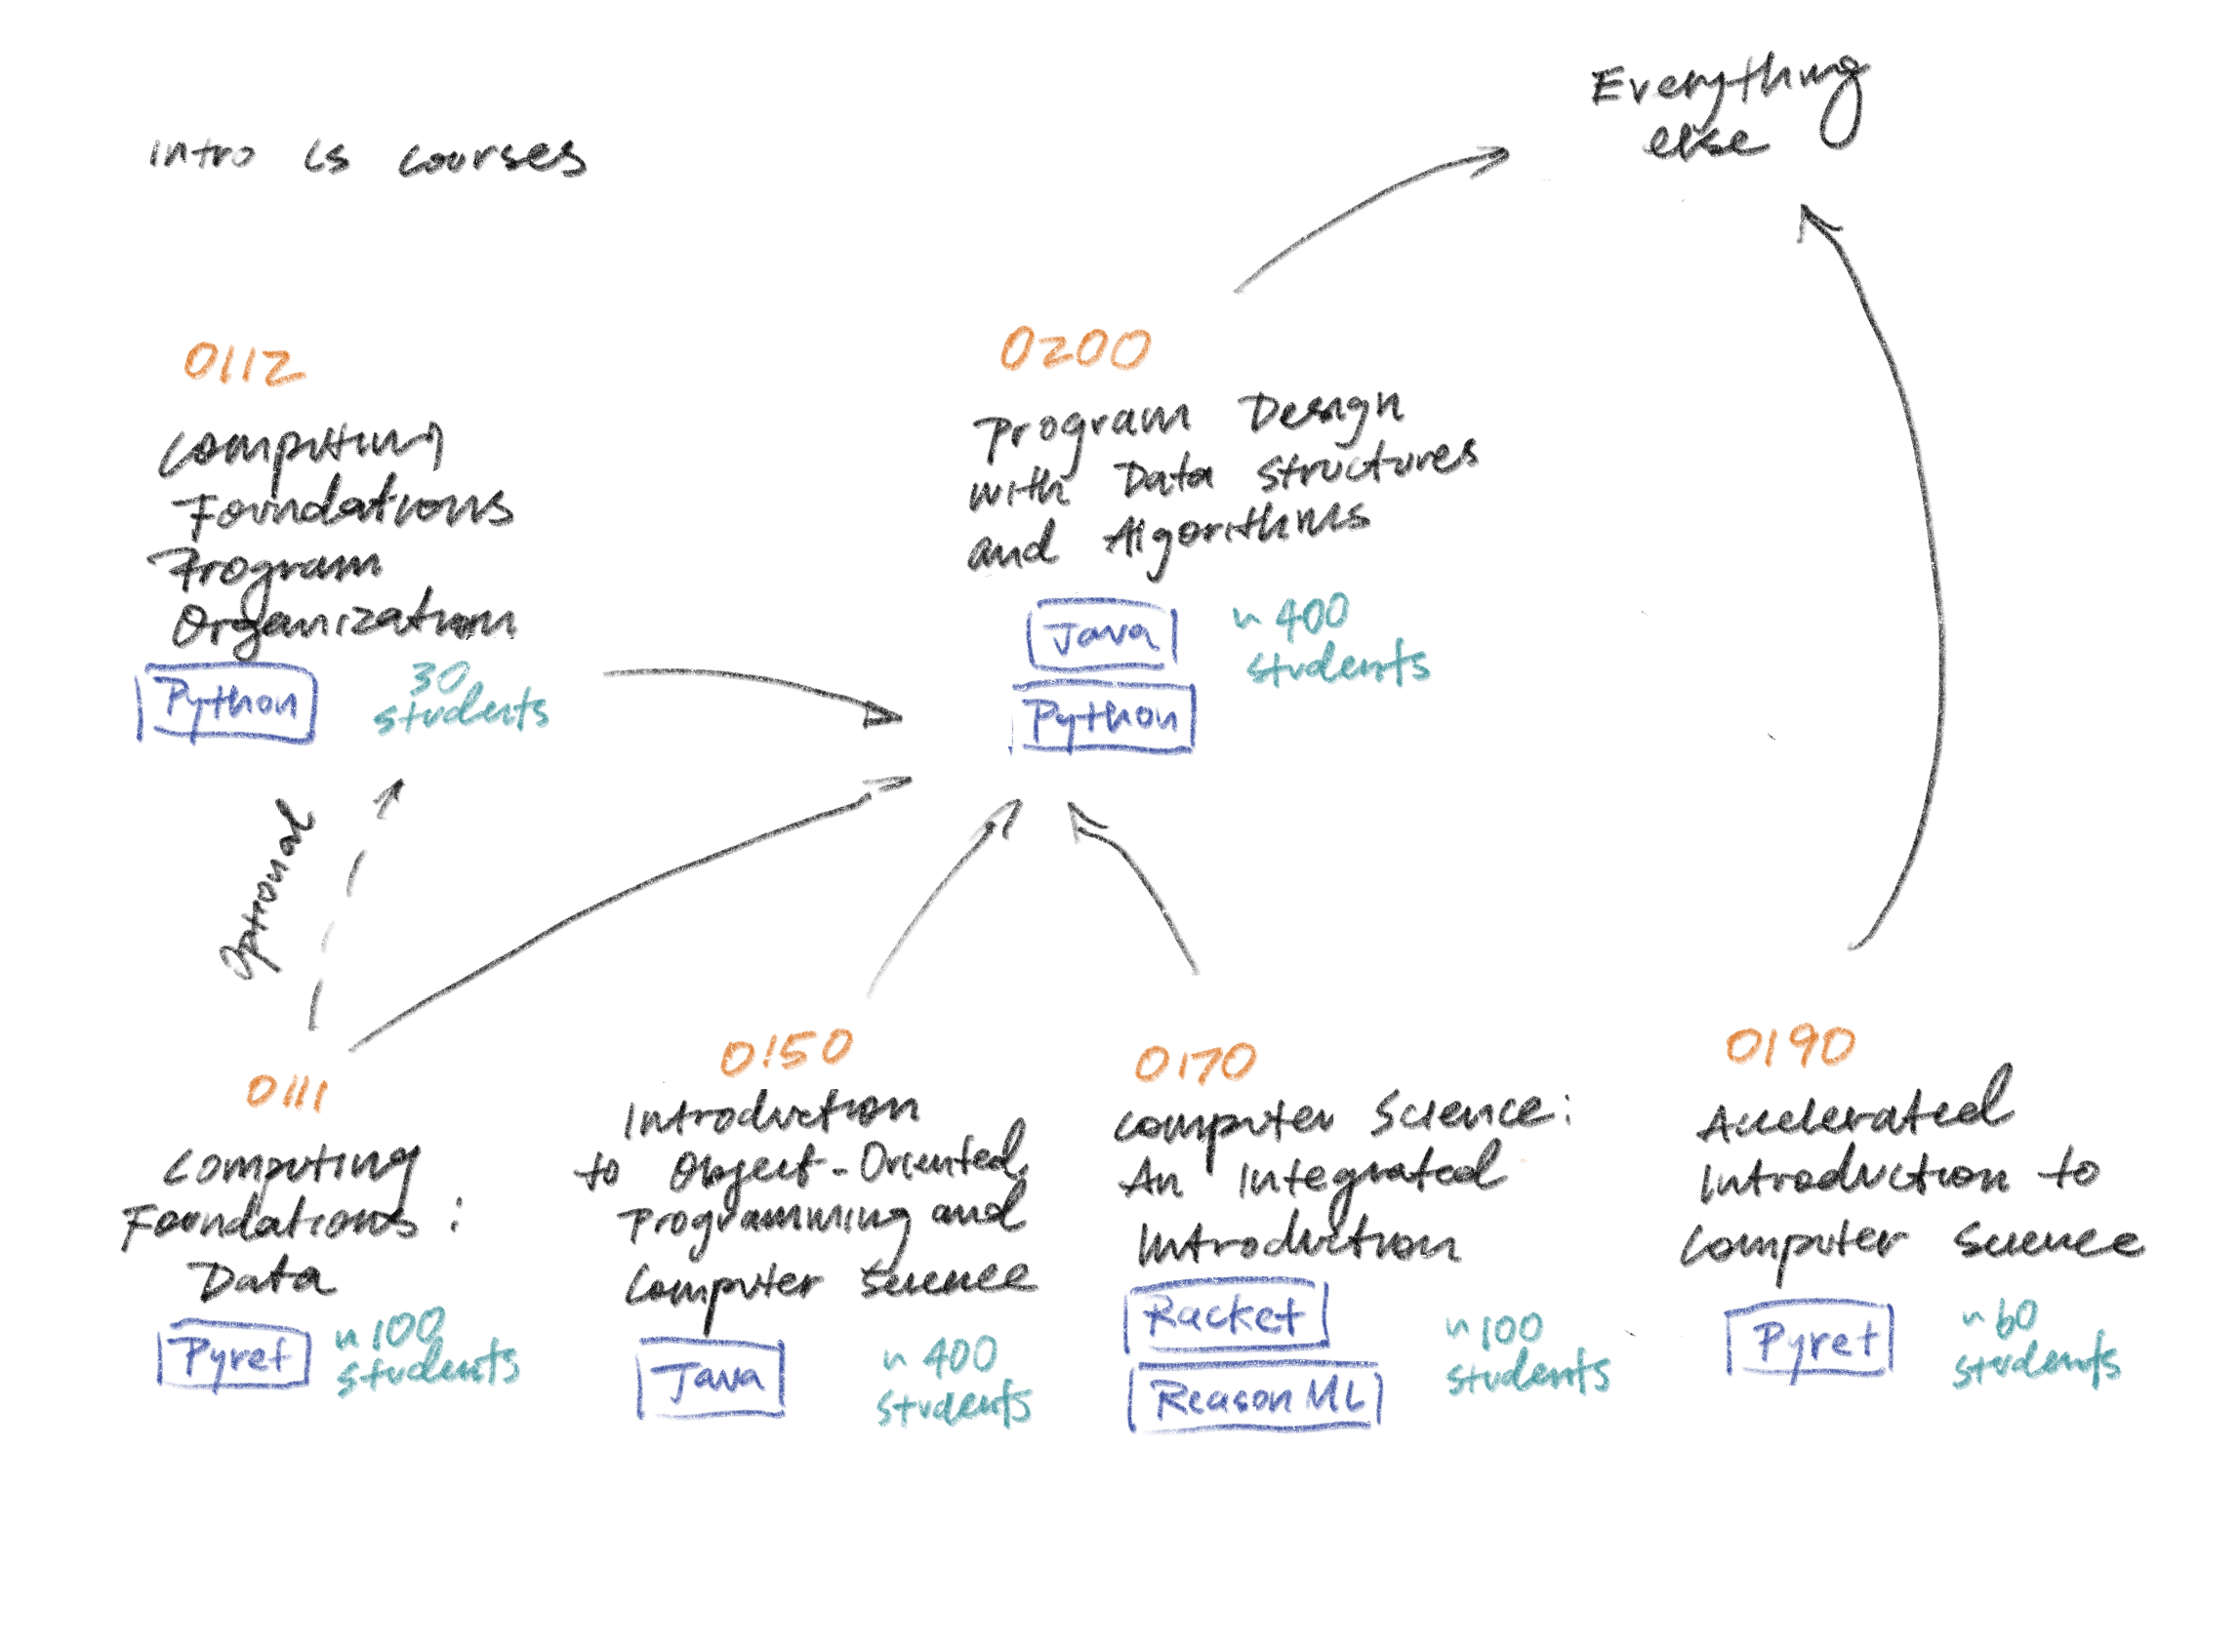 Intro CS courses
Everything
else
0112
Computing
Foundations
Program
Organization
Python
30
students
0200
Program Design
with Data Structures
and Algorithms
Java
Python
~ 400
students
Optional
0111
Computing
Foundations:
Data
Pyret
~ 100
students
0150
Introduction
to Object-Oriented
Programming and
Computer Science
Java
~ 400
students
0170
Computer Science:
An Integrated
Introduction
Racket
ReasonML
~ 100
students
0190
Accelerated
Introduction to
Computer Science
Pyret
~ 60
students